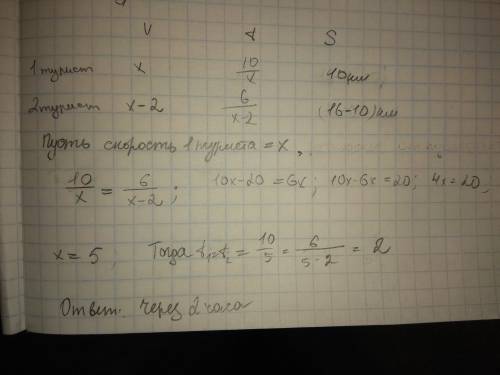 V t S
1 турист x 10/x 10км;
2 турист x-2 6/(x-2) (16-10)км
Пусть скорость 1 туриста = x,
10/x = 6/(x-2); 10x-20=6x; 10x-6x=20; 4x=20,
x=5, Тогда t₁=t₂ = 10/5 = 6/(5-2) = 2
Ответ: через 2 часа